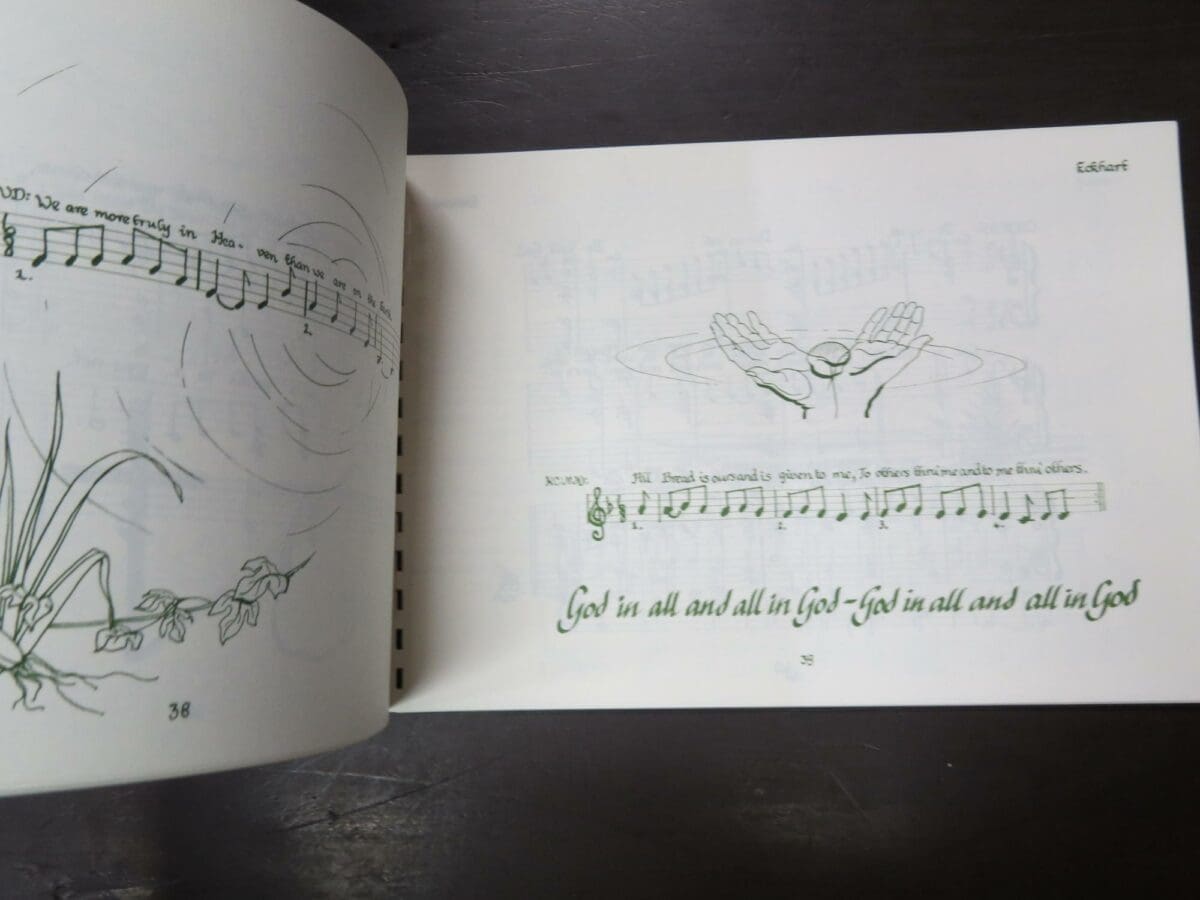 We are more truly in Hea- ven than we are on the Earth
1.
2.
3.
38
Eckhart
ROUND: All Bread is ours and is given to me, To others thru me and to me thru others.
1. 2. 3. 4.
God in all and all in God - God in all and all in God
39